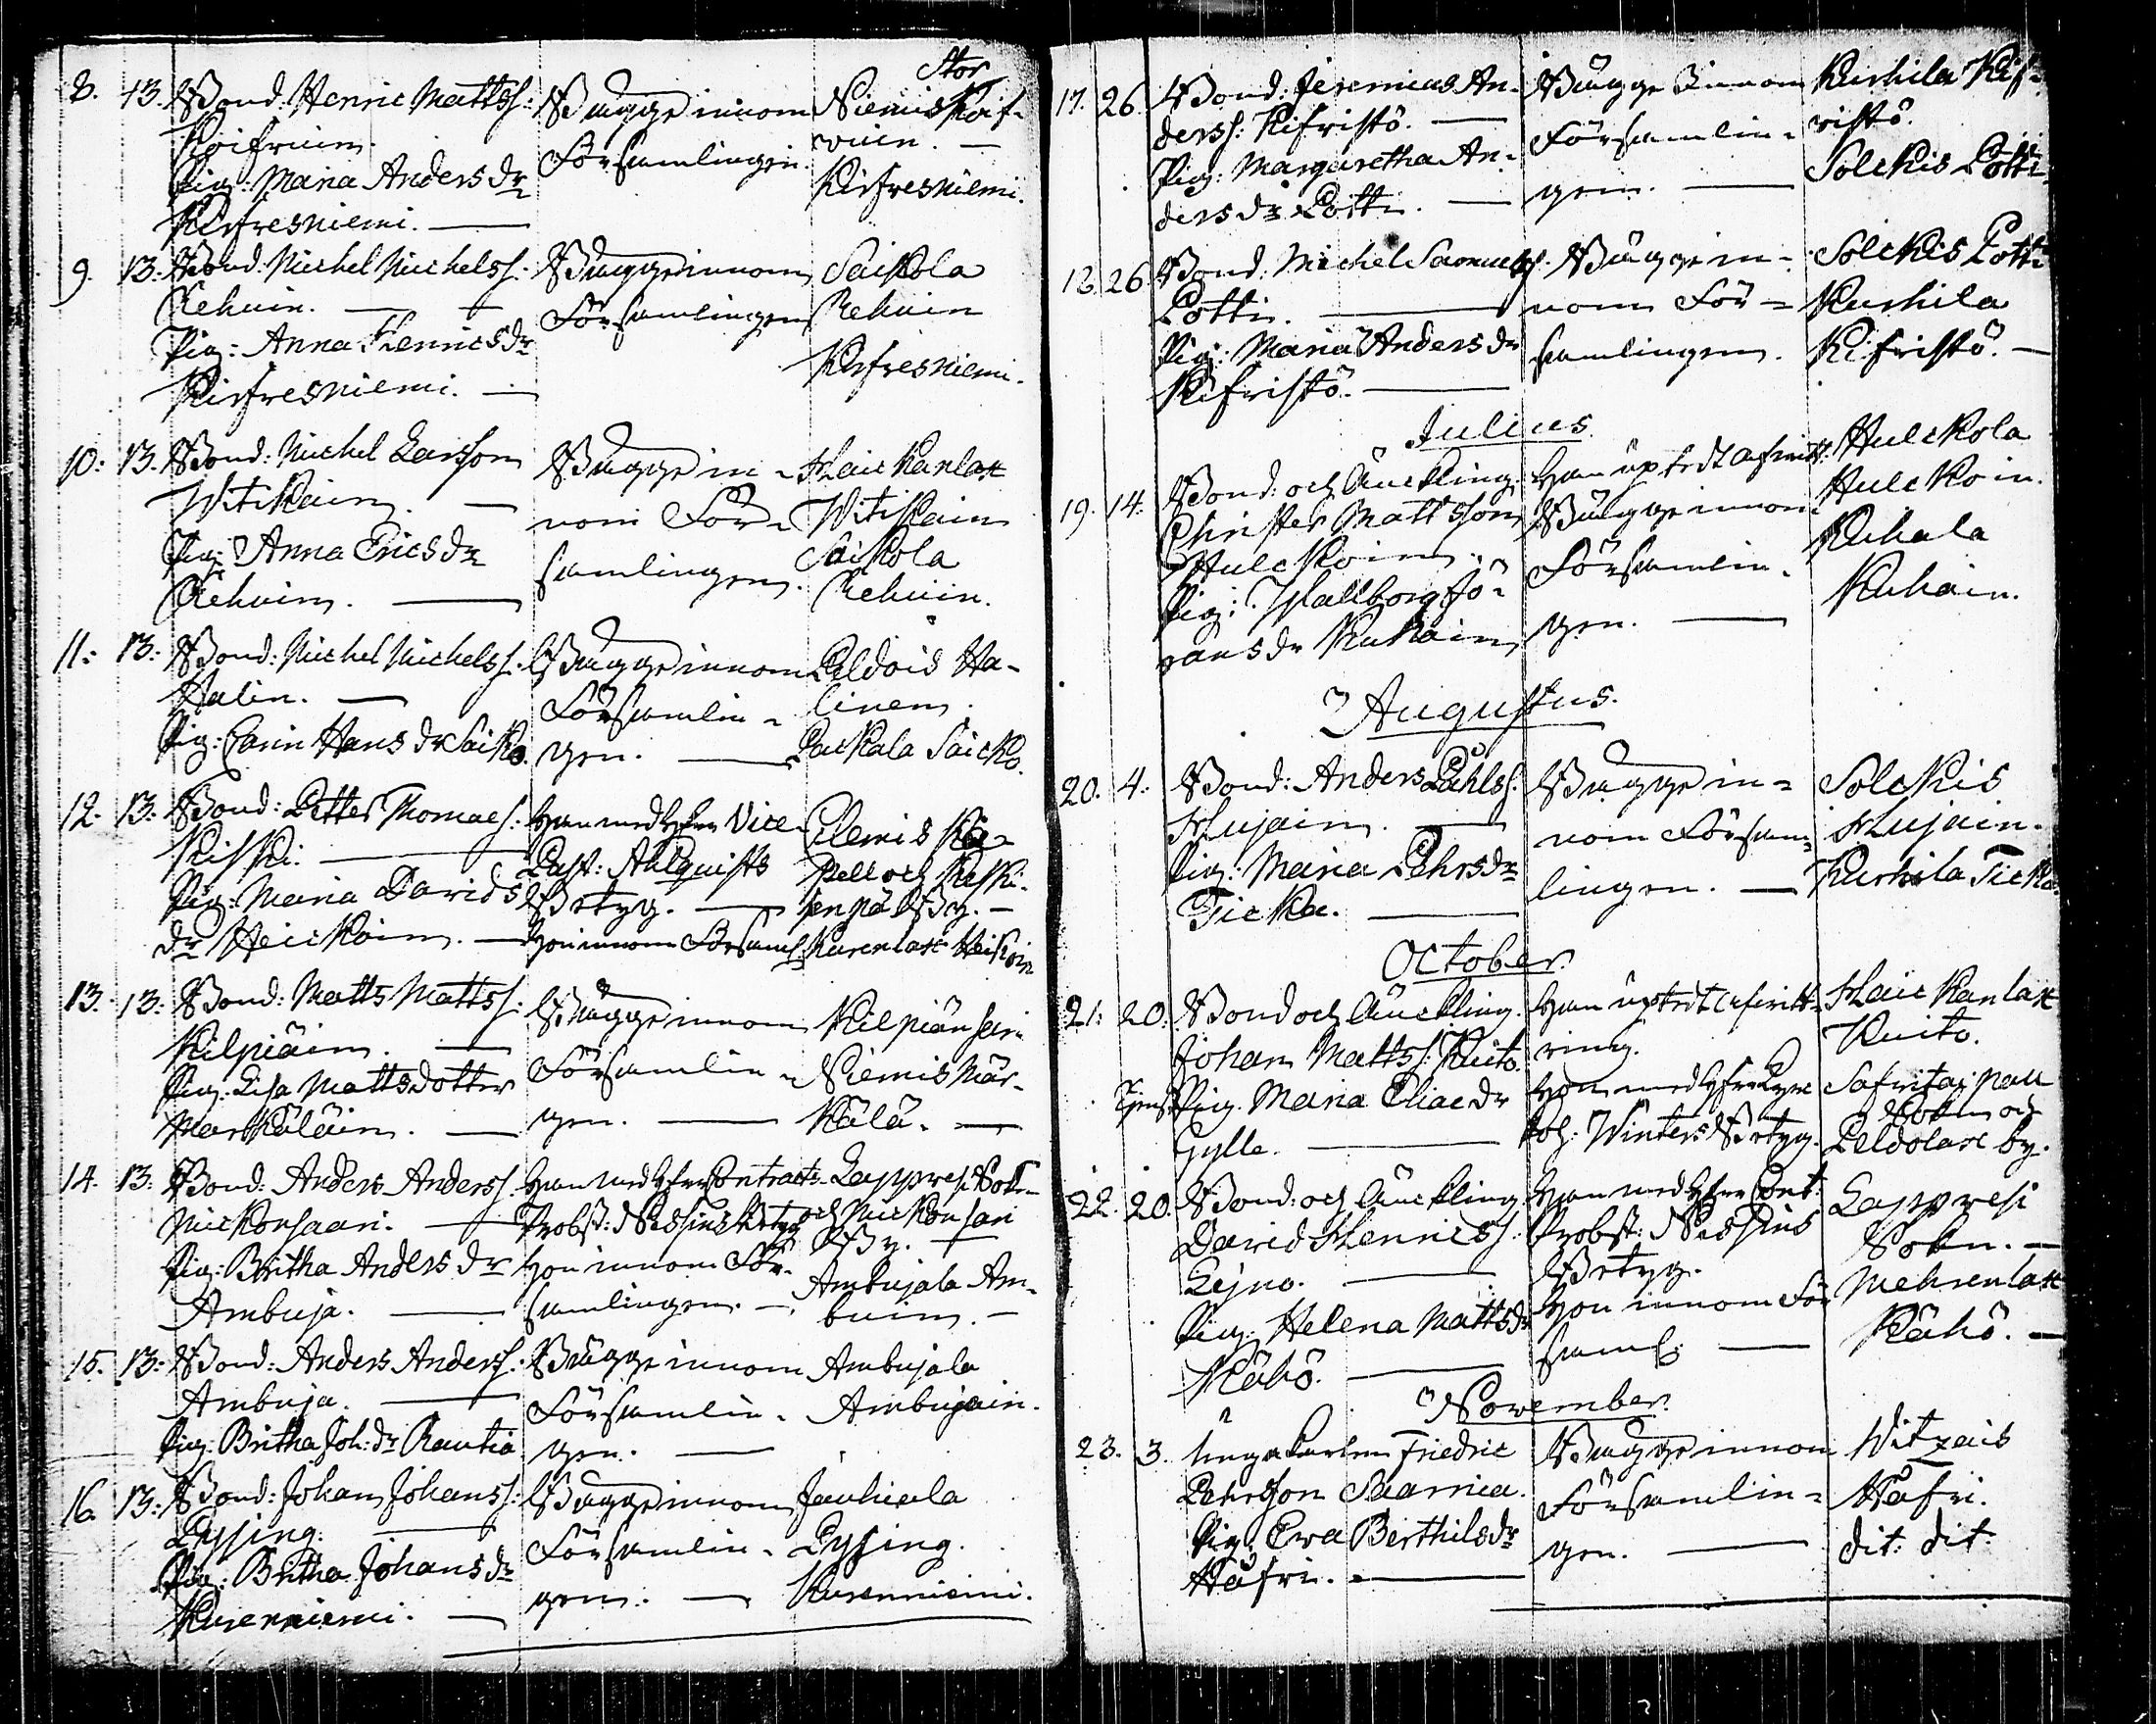 8. 13. Bond: Henric Mattss:
Koifvuin.
Pig: Maria Anders dr
Kirfvesniemi.
Bägge innom
Församlingen.
Stor
Niemis Koif-
vuin.
Kirfvesniemi.
9. 13. Bond: Michel Michelss:
Rehuin.
Pig: Anna Henrics dr
Kirfvesniemi.
Bägge innom
Församlingen
Saikola
Rehuin
Kirfvesniemi.
10: 13. Bond: Michel Larsson
Witikain.
Pig: Anna Erics dr
Rehuin.
Bägge in-
nom För-
samlingen.
Haickanlax
Witikain
Saikola
Rehuin.
11: 13: Bond: Michel Michelss:
Halin.
Pig: Carin Hans dr Saiko.
Bägge innom
Församlin-
gen.
Peldois Ha-
linen.
Packala Saicko.
12. 13: Bond: Petter Thomaes:
Kiski.
Pig: Maria Davids
dr Heickoin.
Han med Herr Vice
Past: Ahlquists
Betyg.
Hon innom Församl:
Clemis Ka-
pell och Keski-
senpä By.
Kurenlax Heikoin
13. 13: Bond: Matts Mattss:
Kilpiäin.
Pig: Lisa Mattsdotter
Markäläin.
Bägge innom
Församlin-
gen.
Kilpiänsari
Niemis Mär-
kälä.
14. 13: Bond: Anders Anderss:
Mickonsaari.
Pig: Britha Anders dr
Ambuja.
Han med Herr Contracts
Probst: Nessius Betyg
Hon innom För-
samlingen.
Lappvesi Sokn
och Mickonsari
By.
Ambujala Am-
buin.
15. 13: Bond: Anders Anderss:
Ambuja.
Pig: Britha Joh: dr Rautia
Bägge innom
Församlin-
gen.
Ambujala
Ambujain.
16. 13: Bond: Johan Johanss:
Pysing.
Pig: Britha Johans dr
Kurenniemi.
Bägge innom
Församlin-
gen.
Jauhiala
Pysing.
Kurenniemi.
17. 26. Bond: Jeremias An-
derss: Kifristö.
Pig: Margaretha An-
ders dr Potti.
Bägge innom
Församlin-
gen.
Kurhila Kif-
ristö.
Solckis Potti.
18. 26. Bond: Michel Samuelss:
Potti.
Pig: Maria Anders dr
Kifristö.
Bägge in-
nom För-
samlingen.
Solckis Potti
Kurhila
Kifristö.
Julius.
19. 14. Bond: och Änckling:
Christer Mattsson
Hulckoin.
Pig: Wallborg Jö-
rans dr Kukoin
Bägge innom
Församlin-
gen.
Hulckola
Hulckoin.
Kukala
Kukoin.
Augustus.
20. 4. Bond: Anders Påhlss:
Hujain.
Pig: Maria Pehrs dr
Ticka.
Bägge in-
nom Försam-
lingen.
Solckis
Hujain.
Kurhila Ticka.
October.
21: 20. Bond och Änckling.
Johan Mattss: Kuito.
Tjenst Pig. Maria Eliae dr
Gylle.
Hon med Herr
Joh: Winters Betyg.
Haickanlax
Kuito.
Safvitaipall
Sokn och
Peldolax by.
22. 20. Bond: och Änckling:
David Henricss:
Lejno.
Pig: Helena Matts dr
Kähö.
Han med Herr Cont:
Probst: Nessius
Betyg.
Hon innom För
saml:
Lappvesi
Sokn.
Mehrenlax
Kähö.
November.
23. 3. Unga Karlen Friedric
Pehrsson Saarnia.
Pig. Ewa Berthils dr
Häfri.
Bägge innom
Församlin-
gen.
Witzais
Häfri.
dit: dit: